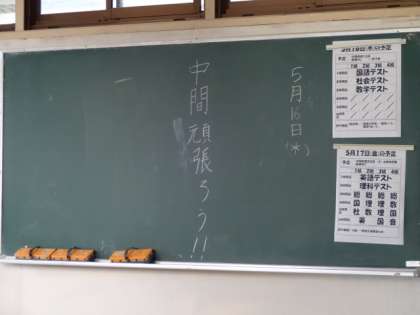 5月16日(木)
中間頑張ろう!!
5月16日(木)の予定
予定
1組 2組 3組 4組
国語テスト
社会テスト
数学テスト
5月17日(金)の予定
予定
1組 2組 3組 4組
英語テスト
理科テスト
総 総 総 総
国 理 理 数
社 数 理 国
英 国 音